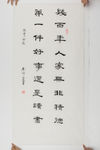 幾百年人家無非積德
第一件好事還是讀書